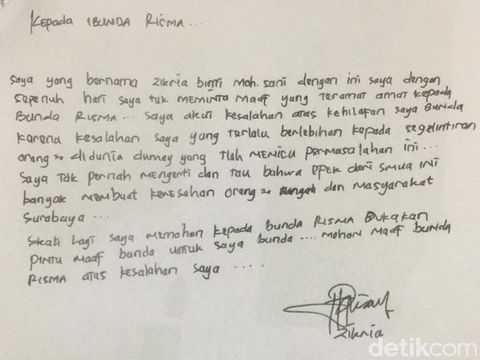 Kepada IBUNDA RISMA...
Saya yang bernama Zikria binti Moh. Sani dengan ini saya dengan
sepenuh hati saya tuk MEMINTA MAAF yang teramat amat kepada
BUNDA RISMA... Saya akui kesalahan atas kehilafan saya BUNDA
karena kesalahan saya yang terlalu berlebihan kepada segelintiran
orang2 di dunia dumay yang tlah MEMICU PERMASALAHAN ini...
Saya tak pernah mengerti dan tau bahwa EFEK dari smua ini
banyak membuat keresahan orang2 dan masyarakat
Surabaya...
Skali lagi saya memohon kepada bunda RISMA BUKAKAN
PINTU MAAF bunda untuk saya bunda.... mohon MAAF bunda
RISMA atas kesalahan saya.....
Zikria
detikcom